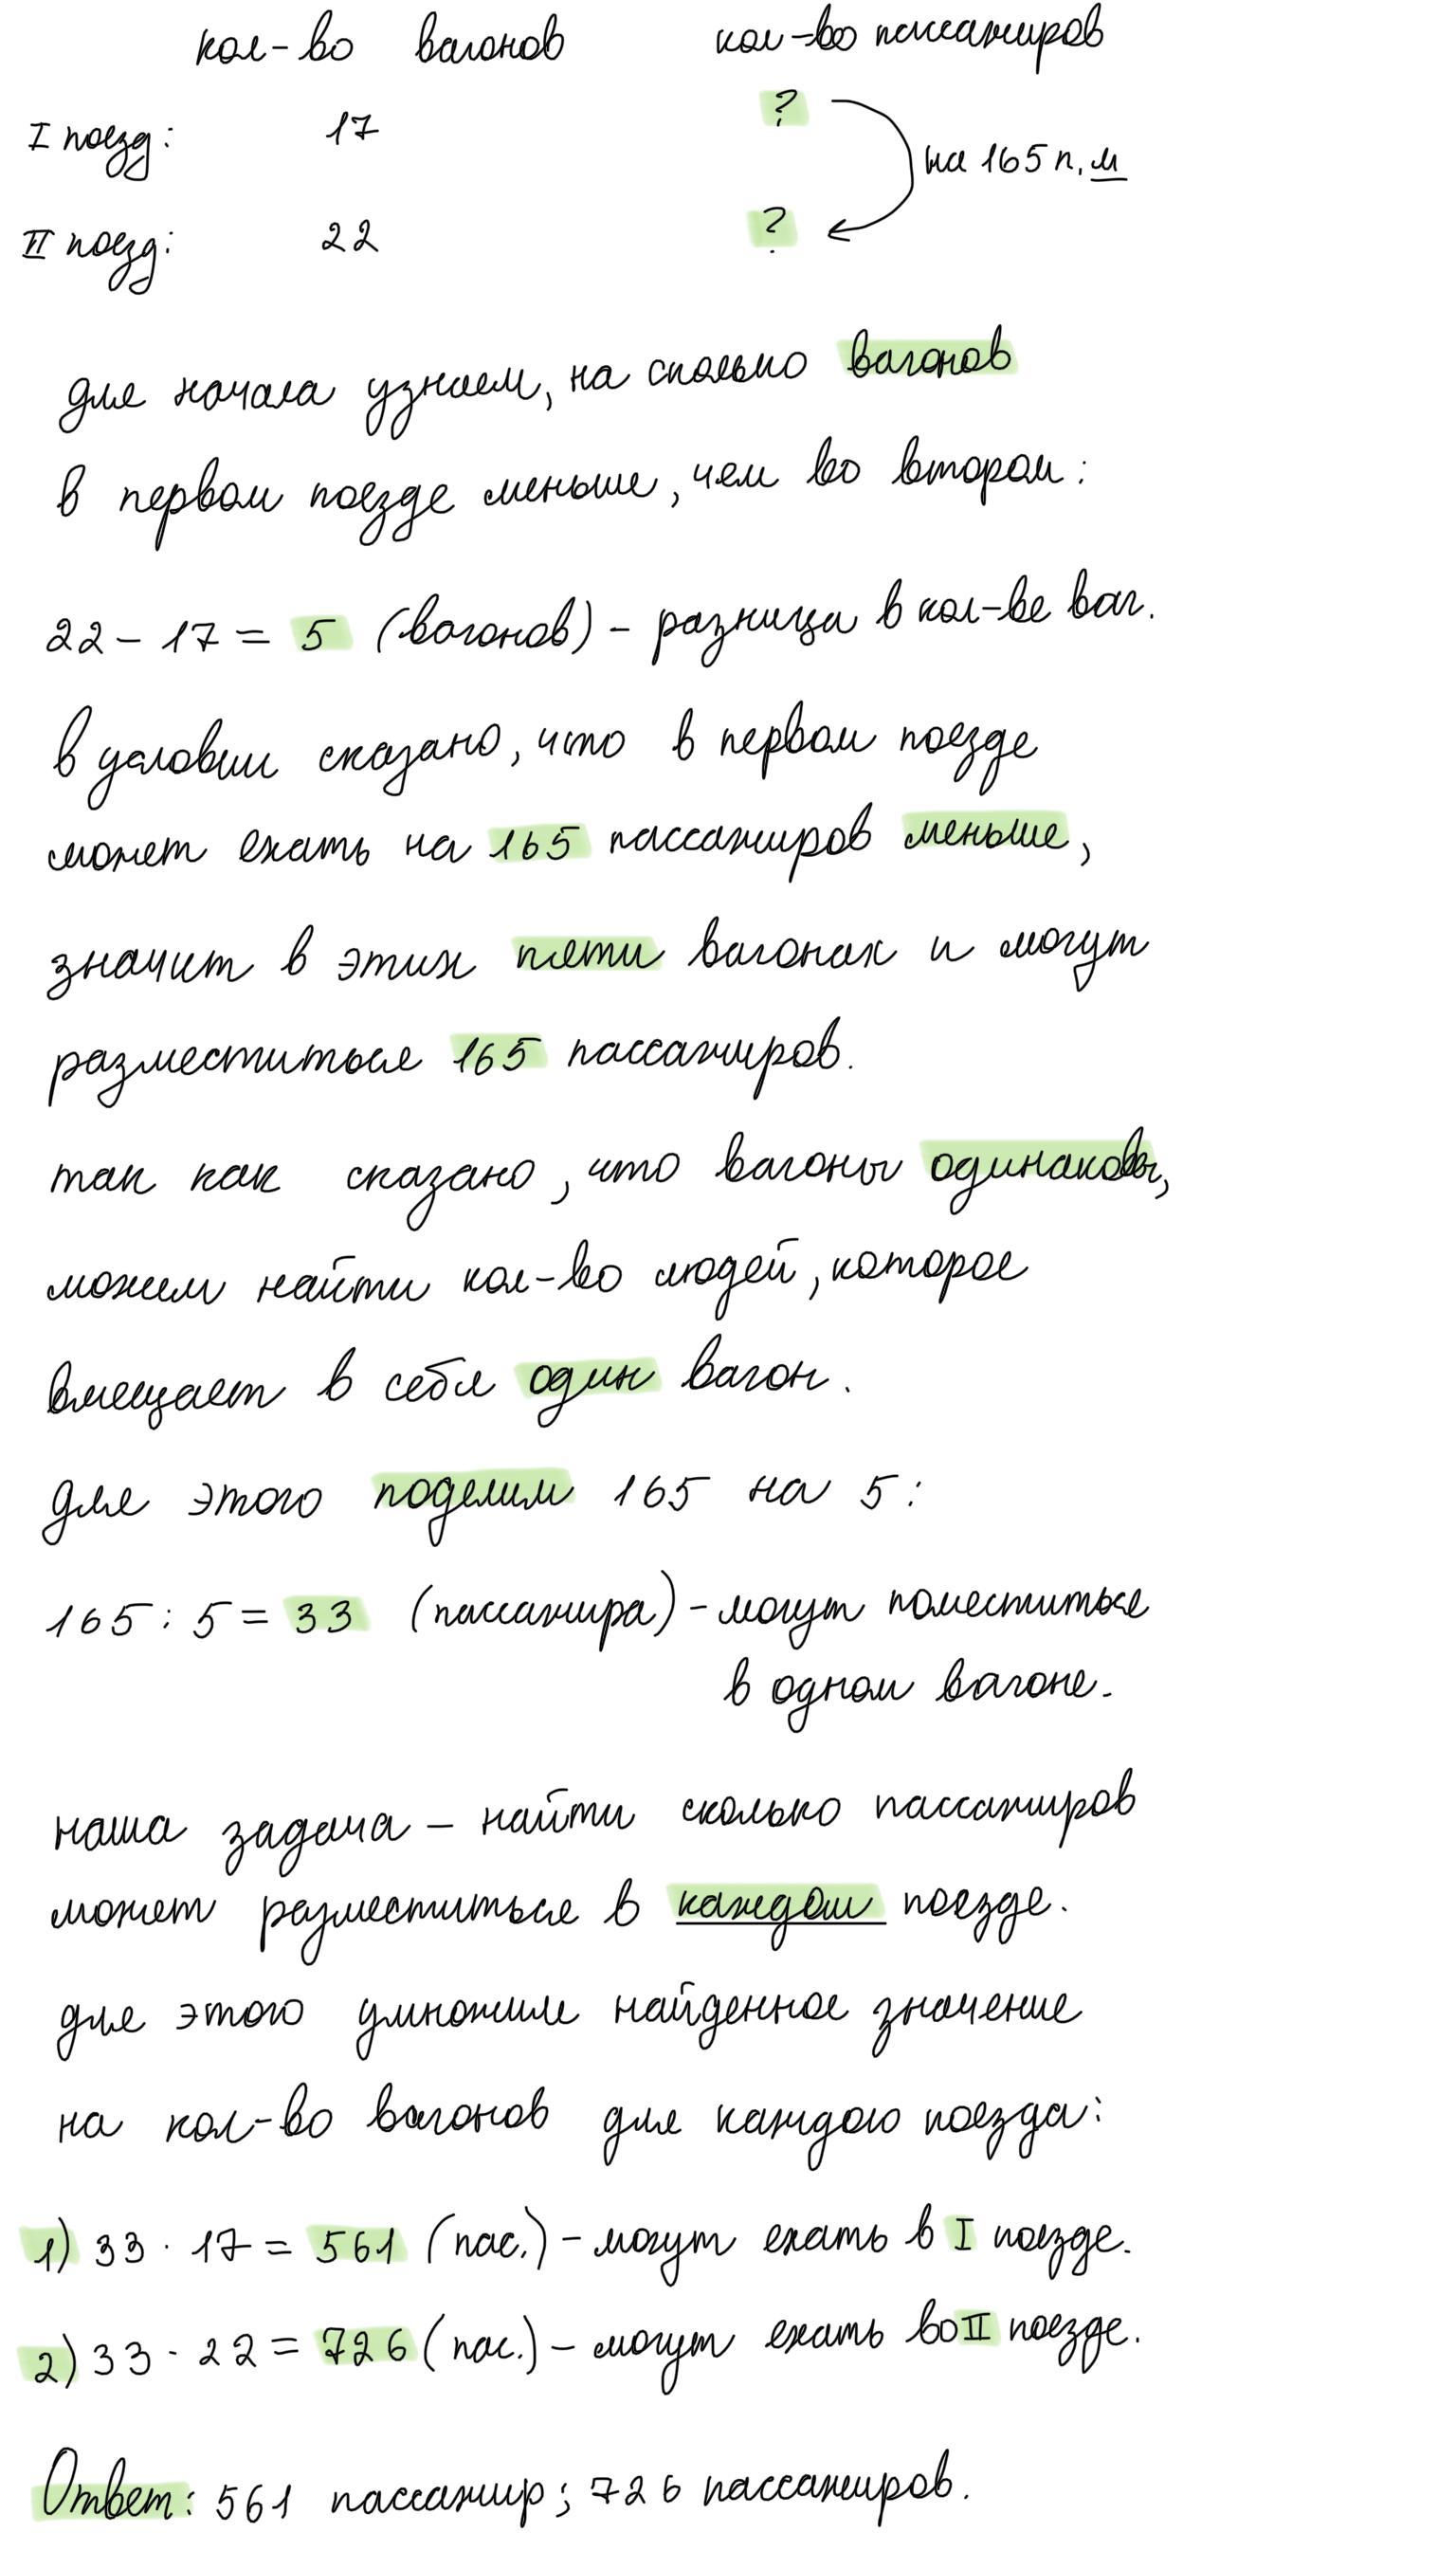 кол-во вагонов кол-во пассажиров
I поезд: 17 ?
на 165 п. м
II поезд: 22 ?
для начала узнаем, на сколько вагонов
в первом поезде меньше, чем во втором:
22 - 17 = 5 (вагонов) - разница в кол-ве ваг.
в условии сказано, что в первом поезде
может ехать на 165 пассажиров меньше,
значит в этих пяти вагонах и могут
разместиться 165 пассажиров.
так как сказано, что вагоны одинаковы,
можем найти кол-во людей, которое
вмещает в себя один вагон.
для этого поделим 165 на 5:
165 : 5 = 33 (пассажира) - могут поместиться
в одном вагоне.
наша задача - найти сколько пассажиров
может разместиться в каждом поезде.
для этого умножим найденное значение
на кол-во вагонов для каждого поезда:
1) 33 · 17 = 561 (пас.) - могут ехать в I поезде.
2) 33 · 22 = 726 (пас.) - могут ехать во II поезде.
Ответ: 561 пассажир; 726 пассажиров.